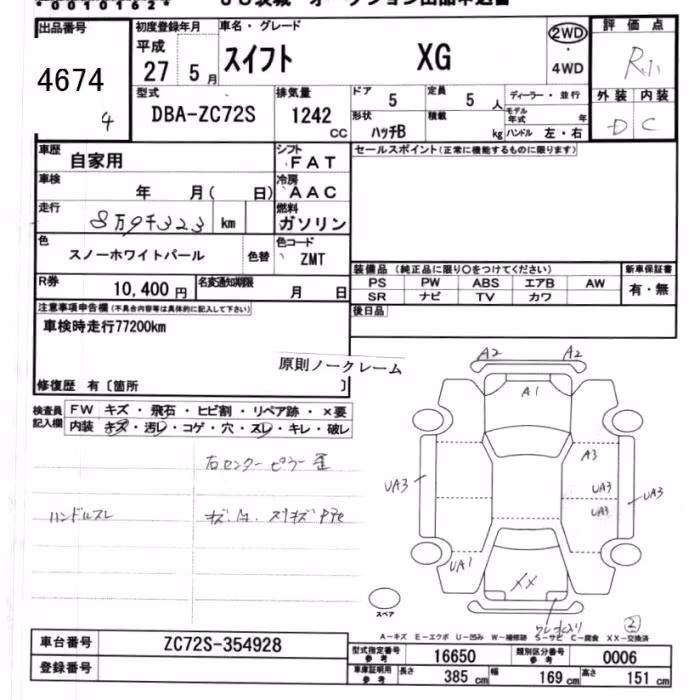 *00101624*
JU茨城 オークション出品申込書
出品番号 初度登録年月 車名・グレード 2WD・4WD 評価点
4674 平成27 5月 スイフト XG
4
型式 排気量 ドア 5 定員 5人 ディーラー・並行 外装 内装
DBA-ZC72S 1242cc 形状 ハッチB 積載 kg モデル年式 年 D C
ハンドル 左・右
車歴 自家用 シフト FAT セールスポイント(正常に機能するものに限ります)
車検 年 月( 日) 冷房 AAC
走行 8万9千323 km 燃料 ガソリン
色 スノーホワイトパール 色替 色コード ZMT
装備品(純正品に限り○をつけてください) 新車保証書
R券 10,400円 名変通知期限 月 日 PS PW ABS エアB AW 有・無
SR ナビ TV カワ
注意事項申告欄(不具合内容等は具体的に記入して下さい) 後日品
車検時走行77200km
原則ノークレーム
修復歴 有〔箇所 〕
検査員記入欄 FW キズ・飛石・ヒビ割・リペア跡・×要
内装 キズ・汚レ・コゲ・穴・スレ・キレ・破レ
右センターピラー歪
ハンドルスレ
A2 A2
A1
A3
UA3 UA3 UA3
UA3
UA1
XX
スペア
A-キズ E-エクボ U-凹み W-補修跡 S-サビ C-腐食 XX-交換済
車台番号 ZC72S-354928 型式指定番号 参考 16650 類別区分番号 参考 0006
登録番号 車庫証明用 参考 長さ 385cm 幅 169cm 高さ 151cm